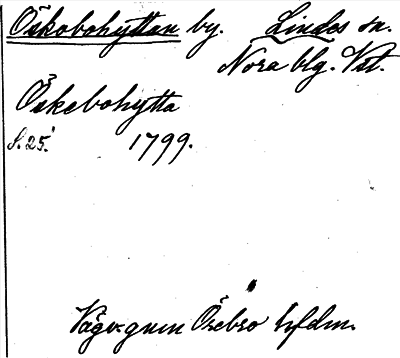 Öskobohyttan by. Lindes sn.
Nora blg. Vst.
Öskebohytta
s. 25. 1799.
Vägv. gnm Örebro hfdm.